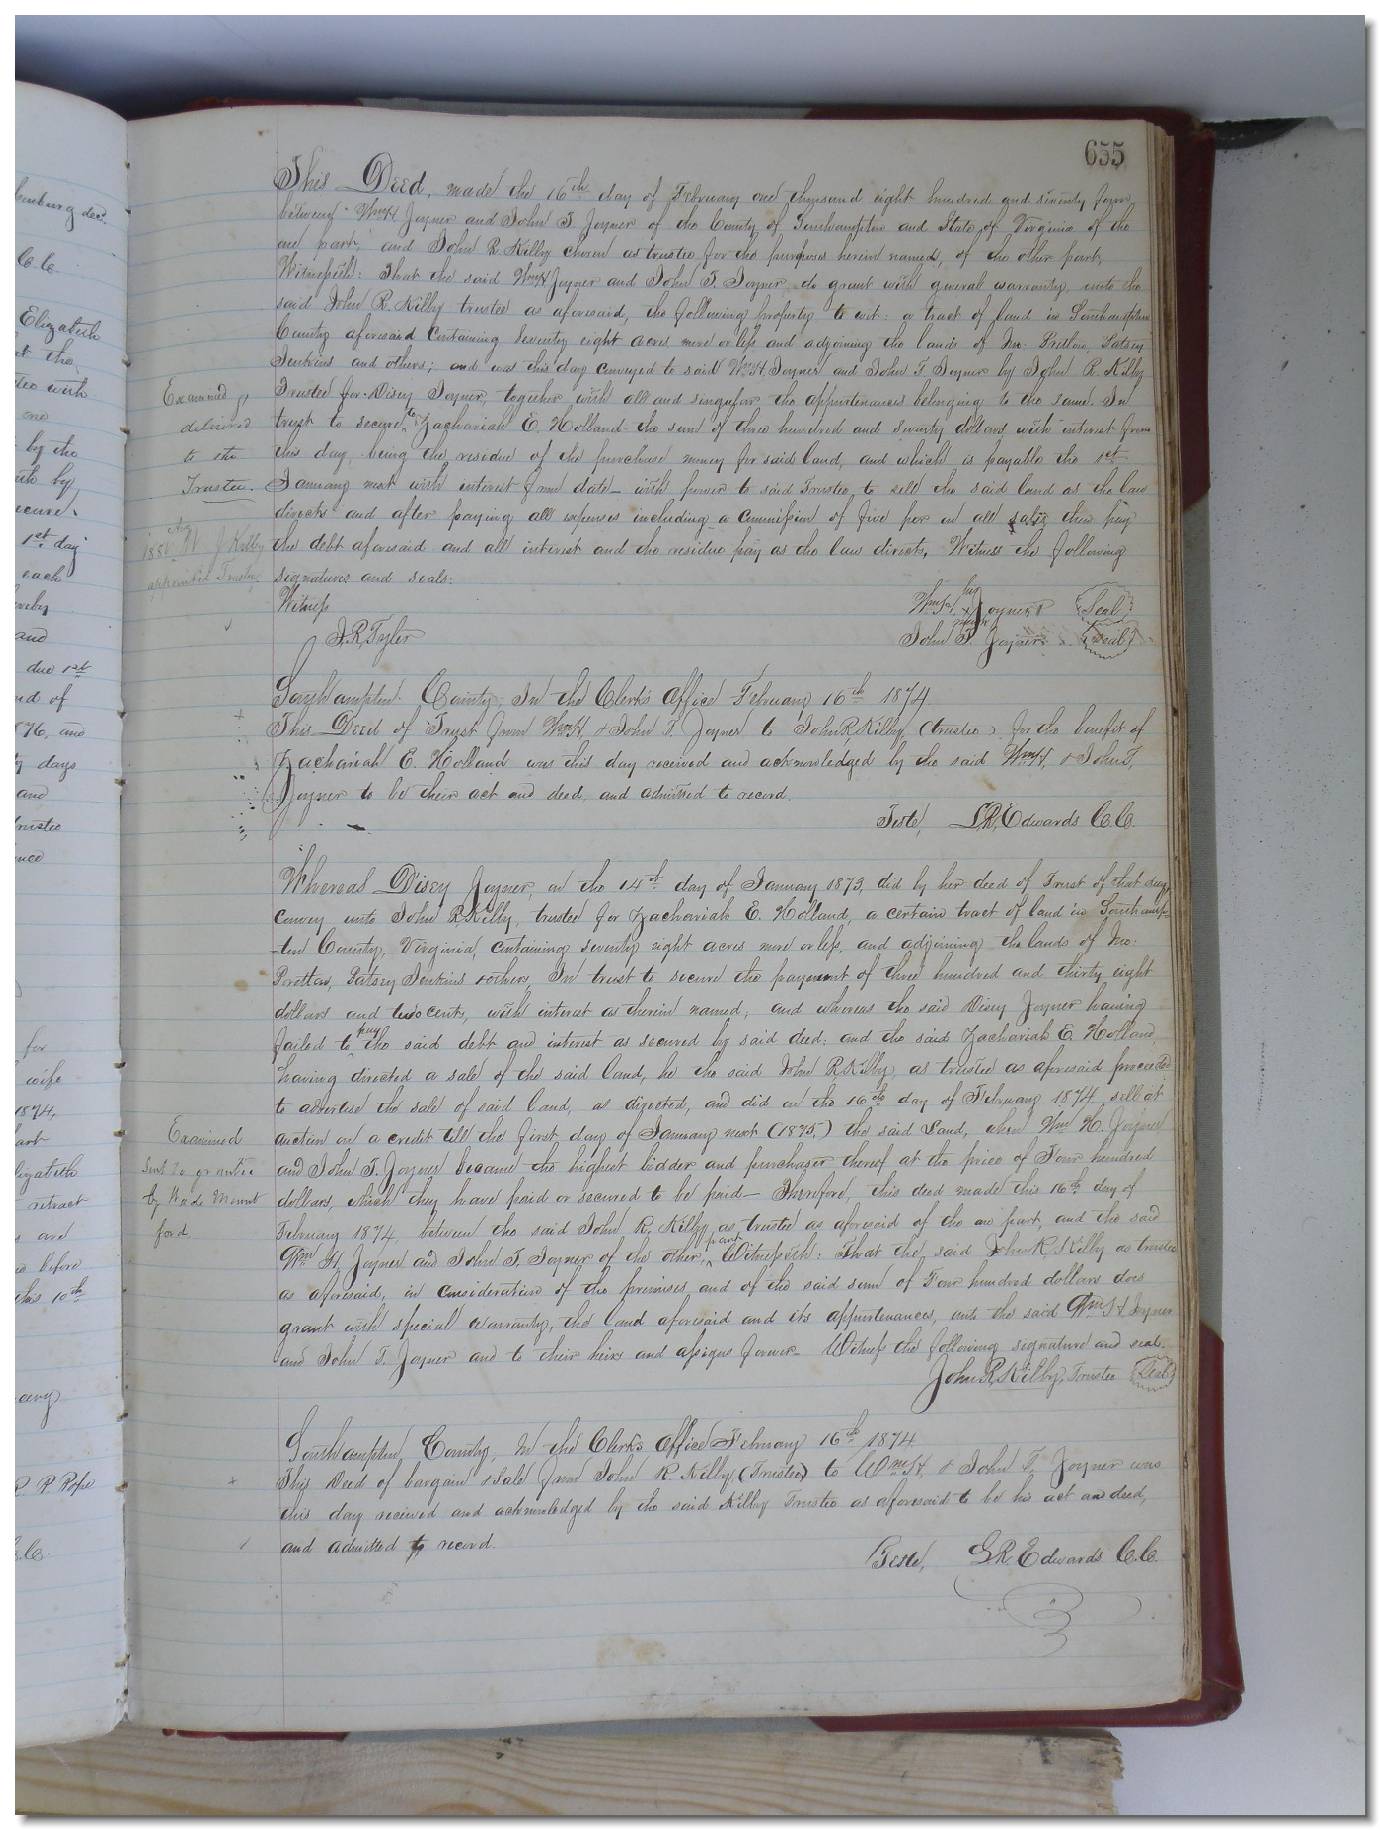 655
This Deed, made the 16th day of February one thousand eight hundred and seventy four
between Wm H Joyner and John T. Joyner of the County of Southampton and State of Virginia of the
one part, and John R. Kilby chosen as trustee for the purposes herein named, of the other part,
Witnesseth: That the said Wm H Joyner and John T. Joyner do grant with general warranty unto the
said John R. Kilby trustee as aforesaid, the following property to wit: a tract of land in Southampton
County aforesaid Containing Seventy eight acres more or less and adjoining the lands of Jno: Patsey
Jenkins and others; and was this day conveyed to said Wm H. Joyner and John T Joyner by John R. Kilby
Trustee for Disey Joyner, together with all and singular the appurtenances belonging to the same. In
trust to secure to Zachariah E. Holland the sum of three hundred and seventy dollars with interest from
this day, being the residue of the purchase money for said land, and which is payable the 1st
January next with interest from date - with power to said Trustee to sell the said land as the law
directs and after paying all expenses including a commission of five per on all sales then pay
the debt aforesaid and all interest and the residue pay as the law directs. Witness the following
signatures and seals:
Witness
J. R. Tyler
his
Wm H. x Joyner (Seal)
mark
John T. Joyner (Seal)
Examined &
delivered
to the
Trustee.
J Kilby
appointed Trustee
Southampton County, In the Clerk's Office February 16th 1874
This Deed of Trust from Wm H. & John T. Joyner to John R Kilby, (trustee) for the benefit of
Zachariah E. Holland was this day received and acknowledged by the said Wm H. & John T.
Joyner to be their act and deed, and admitted to record.
Teste, L. R. Edwards C. C.
Whereas Disey Joyner, on the 14th day of January 1873, did by her deed of Trust of that day,
convey unto John R. Kilby, trustee for Zachariah E. Holland, a certain tract of land in Southamp-
-ton County, Virginia, containing seventy eight acres more or less, and adjoining the lands of Jno:
Patsey Jenkins & others, In trust to secure the payment of three hundred and thirty eight
dollars and two cents, with interest as therein named; and whereas the said Disey Joyner having
failed to pay the said debt and interest as secured by said deed: and the said Zachariah E. Holland,
having directed a sale of the said land, he the said John R Kilby, as trustee as aforesaid proceeded
to advertise the sale of said land, as directed, and did on the 16th day of February 1874, sell at
auction on a credit till the first day of January next (1875,) the said Land, when Wm H. Joyner
and John T. Joyner became the highest bidder and purchaser thereof at the price of Four hundred
dollars, which they have paid or secured to be paid - Therefore, this deed made this 16th day of
February 1874, between the said John R. Kilby, as trustee as aforesaid of the one part, and the said
Wm H. Joyner and John T. Joyner of the other part, Witnesseth: That the said John R Kilby as trustee
as aforesaid, in consideration of the premises, and of the said sum of Four hundred dollars does
grant with special warranty, the land aforesaid and its appurtenances, unto the said Wm H Joyner
and John T. Joyner and to their heirs and assigns forever - Witness the following signature and seal.
John R. Kilby, Trustee (Seal)
Examined
Sent to grantee
by Wade Mount
ford
Southampton County, In the Clerk's Office February 16th 1874
This Deed of bargain & Sale from John R. Kilby (Trustee) to Wm H. & John T. Joyner was
this day received and acknowledged by the said Kilby Trustee as aforesaid to be his act and deed,
and admitted to record.
Teste, L R. Edwards C. C.